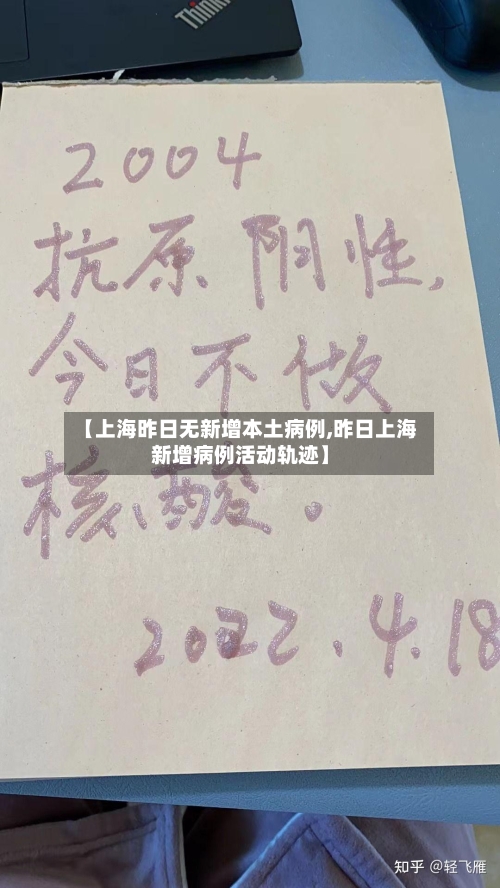 Think
2004
抗原阴性,
今日不做
【上海昨日无新增本土病例,昨日上海
新增病例活动轨迹】
核酸。
2022.4.18
知乎 @轻飞雁